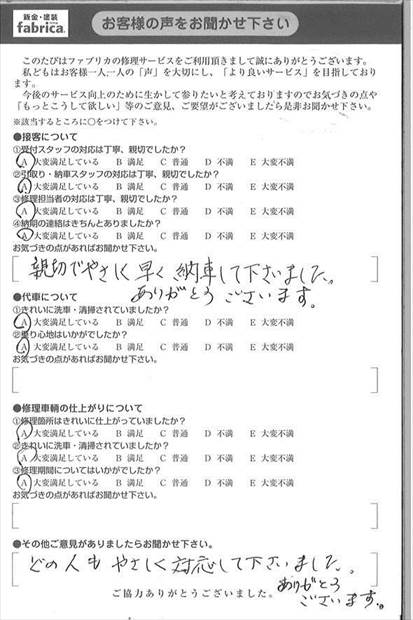 鈑金・塗装
fabrica.
お客様の声をお聞かせ下さい
このたびはファブリカの修理サービスをご利用頂きまして誠にありがとうございます。
私どもはお客様一人一人の「声」を大切にし、「より良いサービス」を目指しており
ます。
今後のサービス向上のために生かして参りたいと考えておりますのでお気づきの点や
「もっとこうして欲しい」等のご意見、ご要望がございましたら是非お聞かせ下さい。
※該当するところに○をつけて下さい。
●接客について
①受付スタッフの対応は丁寧、親切でしたか？
A 大変満足している B 満足 C 普通 D 不満 E 大変不満
②引取り・納車スタッフの対応は丁寧、親切でしたか？
A 大変満足している B 満足 C 普通 D 不満 E 大変不満
③修理担当者の対応は丁寧、親切でしたか？
A 大変満足している B 満足 C 普通 D 不満 E 大変不満
④納期の連絡はきちんとありましたか？
A 大変満足している B 満足 C 普通 D 不満 E 大変不満
お気づきの点があればお聞かせ下さい。
親切でやさしく 早く 納車して下さいました。
ありがとう ございます。
●代車について
①きれいに洗車・清掃されていましたか？
A 大変満足している B 満足 C 普通 D 不満 E 大変不満
②乗り心地はいかがでしたか？
A 大変満足している B 満足 C 普通 D 不満 E 大変不満
お気づきの点があればお聞かせ下さい。
●修理車輌の仕上がりについて
①修理箇所はきれいに仕上がっていましたか？
A 大変満足している B 満足 C 普通 D 不満 E 大変不満
②きれいに洗車・清掃されていましたか？
A 大変満足している B 満足 C 普通 D 不満 E 大変不満
③修理期間についてはいかがでしたか？
A 大変満足している B 満足 C 普通 D 不満 E 大変不満
お気づきの点があればお聞かせ下さい。
●その他ご意見がありましたらお聞かせ下さい。
どの人も やさしく 対応して下さいました。
ありがとう
ございます。
ご協力ありがとうございました。